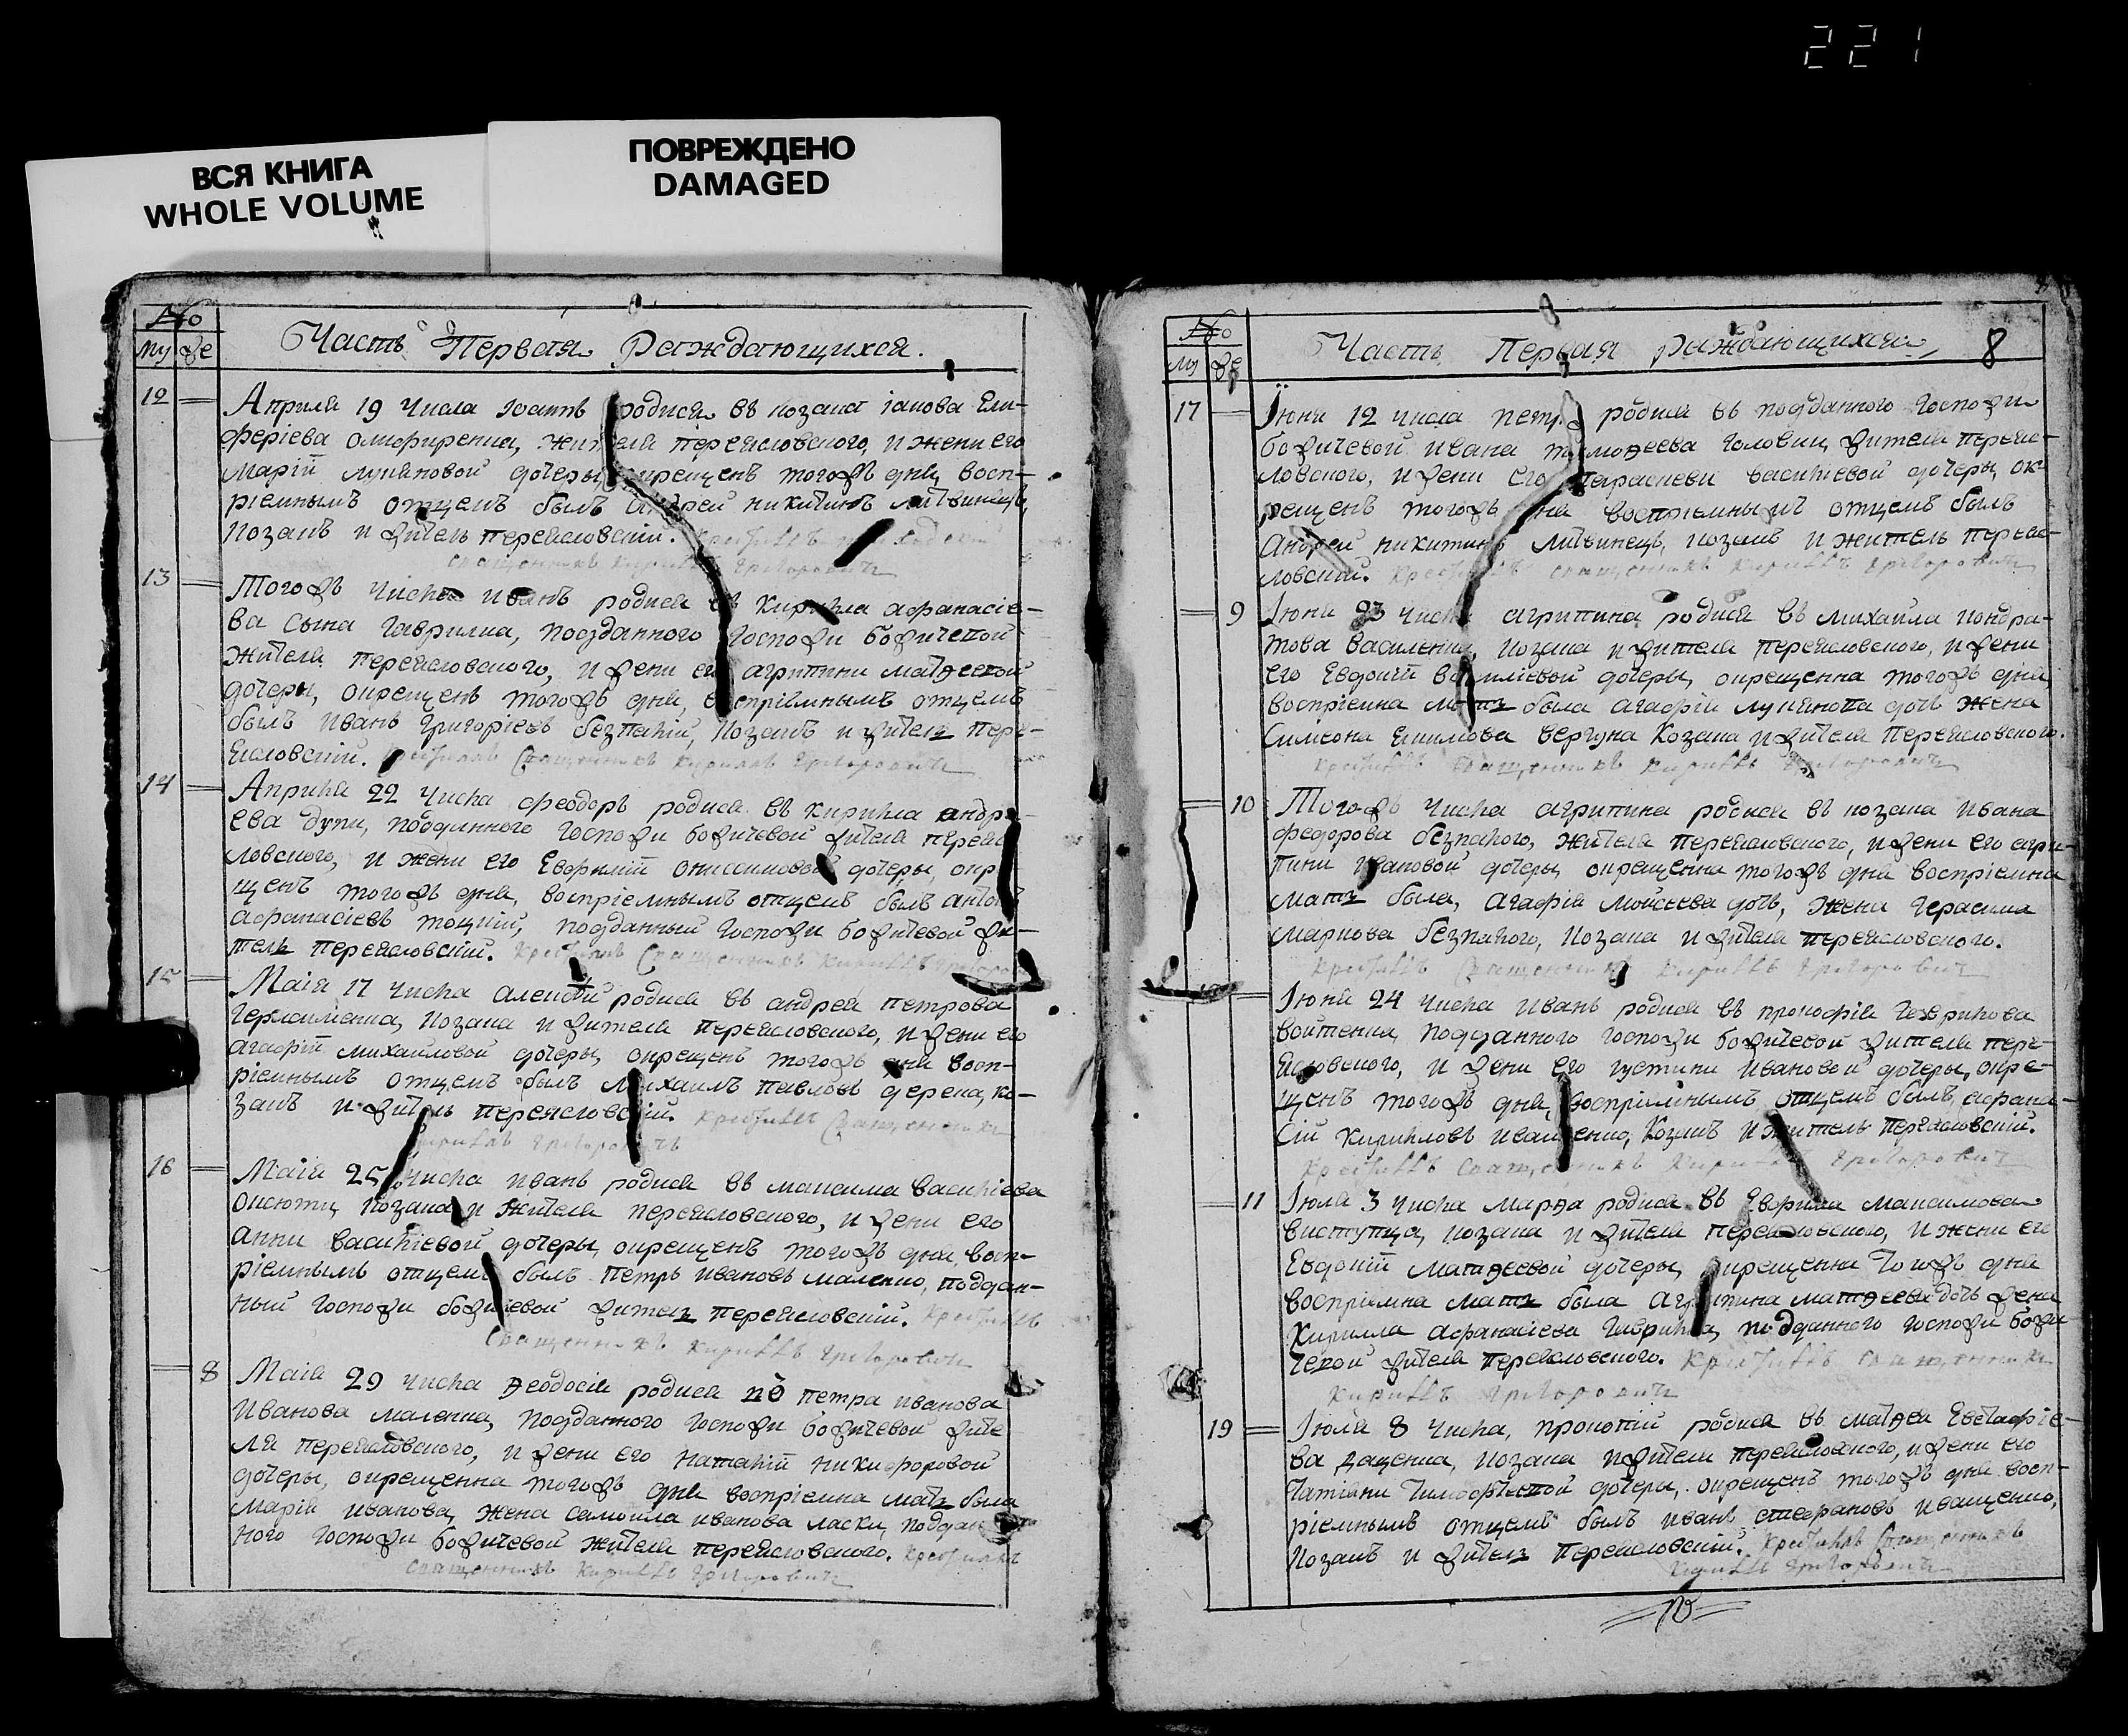 221
ВСЯ КНИГА
WHOLE VOLUME
ПОВРЕЖДЕНО
DAMAGED
№
Му Же
Часть Первая Раждающихся.
12
Априля 19 числа Іоаннъ родися въ козака іакова Ели-
феріева олифиренка, жителя переясловского, и жени его
Маріи лукяновой дочеры, окрещенъ тогожъ дня, восп-
ріемнымъ отцемъ былъ Андрей никитинъ литвинецъ,
козакъ и житель переясловскій. Крестилъ
священникъ Кириллъ Григоровичъ
13
Тогожъ числа иванъ родися въ Кирилла афанасіе-
ва сына гаврилка, подданного госпожи божичевой
жителя переясловского, и жени его агрипини матѳеевой
дочеры, окрещенъ тогожъ дня, воспріемнымъ отцемъ
былъ иванъ григоріевъ безпалій, козакъ и житель пере-
ясловскій. Крестилъ Священникъ Кириллъ Григоровичъ
14
Априля 22 числа феодоръ родися въ кирилла андре-
ева дупи, подданного госпожи божичевой жителя переяс
ловского, и жени его Евфиміи онисимовой дочеры, окре
щенъ тогожъ дня, воспріемнымъ отцемъ былъ антон
афанасіевъ тоцкій, подданный госпожи божичевой жи-
тель переясловскій. Крестилъ Священникъ Кириллъ Григоро
15
Маія 17 числа алексій родися въ андрея петрова
герасименка, козака и жителя переясловского, и жени его
агафіи михайловой дочеры, окрещенъ тогожъ дня восп-
ріемнымъ отцемъ былъ михаилъ павловъ дерека, ко-
закъ и житель переясловскій. Крестилъ Священникъ
Кириллъ Григоровичъ
16
Маія 25 числа иванъ родися въ максима василіева
оксюти, козака и жителя переясловского, и жени его
анни василіевой дочеры, окрещенъ тогожъ дня, восп-
ріемнымъ отцемъ былъ петръ ивановъ маленко, поддан-
ный госпожи божичевой житель переясловскій. Крестилъ
Священникъ Кириллъ Григоровичъ
8
Маія 29 числа Ѳеодосія родися петра иванова
Иванова маленка, подданного госпожи божичевой жите
ля переясловского, и жени его наталіи никифоровой
дочеры, окрещенна тогожъ дня воспріемна мать была
марія иванова, жена самоила иванова ласки, поддан
ного госпожи божичевой жителя переясловского. Крестилъ
священникъ Кириллъ Григоровичъ
№
Му Же
Часть Первая Раждающихся 8
17
Іюня 12 числа петръ родися въ подданного госпожи
божичевой ивана тимоѳеева головки, жителя переяс-
ловского, и жени его параскеви василіевой дочеры, ок-
рещенъ тогожъ дня воспріемнымъ отцемъ былъ
андрей никитинъ литвинецъ, козакъ и житель переяс-
ловскій. Крестилъ священникъ Кириллъ Григоровичъ
9
Іюня 23 числа агрипина родися въ михаила кондра-
това василенка, козака и жителя переясловского, и жени
его Евдокіи дочеры, окрещенна тогожъ дня,
воспріемна мать была агафія лукянова дочь жена
Симеона Вергуна Козака и жителя Переясловского.
Крестилъ Священникъ Кириллъ Григоровичъ
10
Тогожъ числа агрипина родися въ козака ивана
федорова безпалого, жителя переясловского, и жени его агри-
пини ивановой дочеры, окрещенна тогожъ дня воспріемна
мать была, агафія мойсеева дочь, жена герасима
маркова безпалого, козака и жителя переясловского.
Крестилъ Священникъ Кириллъ Григоровичъ
Іюня 24 числа иванъ родися въ прокофія гаврилова
войтенка, подданного госпожи божичевой жителя пере-
ясловского, и жени его густини ивановой дочеры, окре-
щенъ тогожъ дня, воспріемнымъ отцемъ былъ афана-
сій кирилловъ иващенко, козакъ и житель переясловскій.
Крестилъ Священникъ Кириллъ Григоровичъ
11
Іюля 3 числа марѳа родися въ максимова
виступца, козака и жителя переясловского, и жени его
Евдокіи матѳеевой дочеры, окрещенна тогожъ дня
воспріемна мать была агрипина матѳеева дочь жена
кирилла афанасіева гаврилка, подданного госпожи божи-
чевой жителя переясловского. Крестилъ священникъ
Кириллъ Григоровичъ
19
Іюля 8 числа, прокопій родися въ матѳея Евстафіе-
ва дащенка, козака и жителя переясловского, и жени его
татіани тимофѣевой дочеры, окрещенъ тогожъ дня восп-
ріемнымъ отцемъ былъ иванъ стефановъ иващенко,
козакъ и житель переясловскій. Крестилъ Священникъ
Кириллъ Григоровичъ